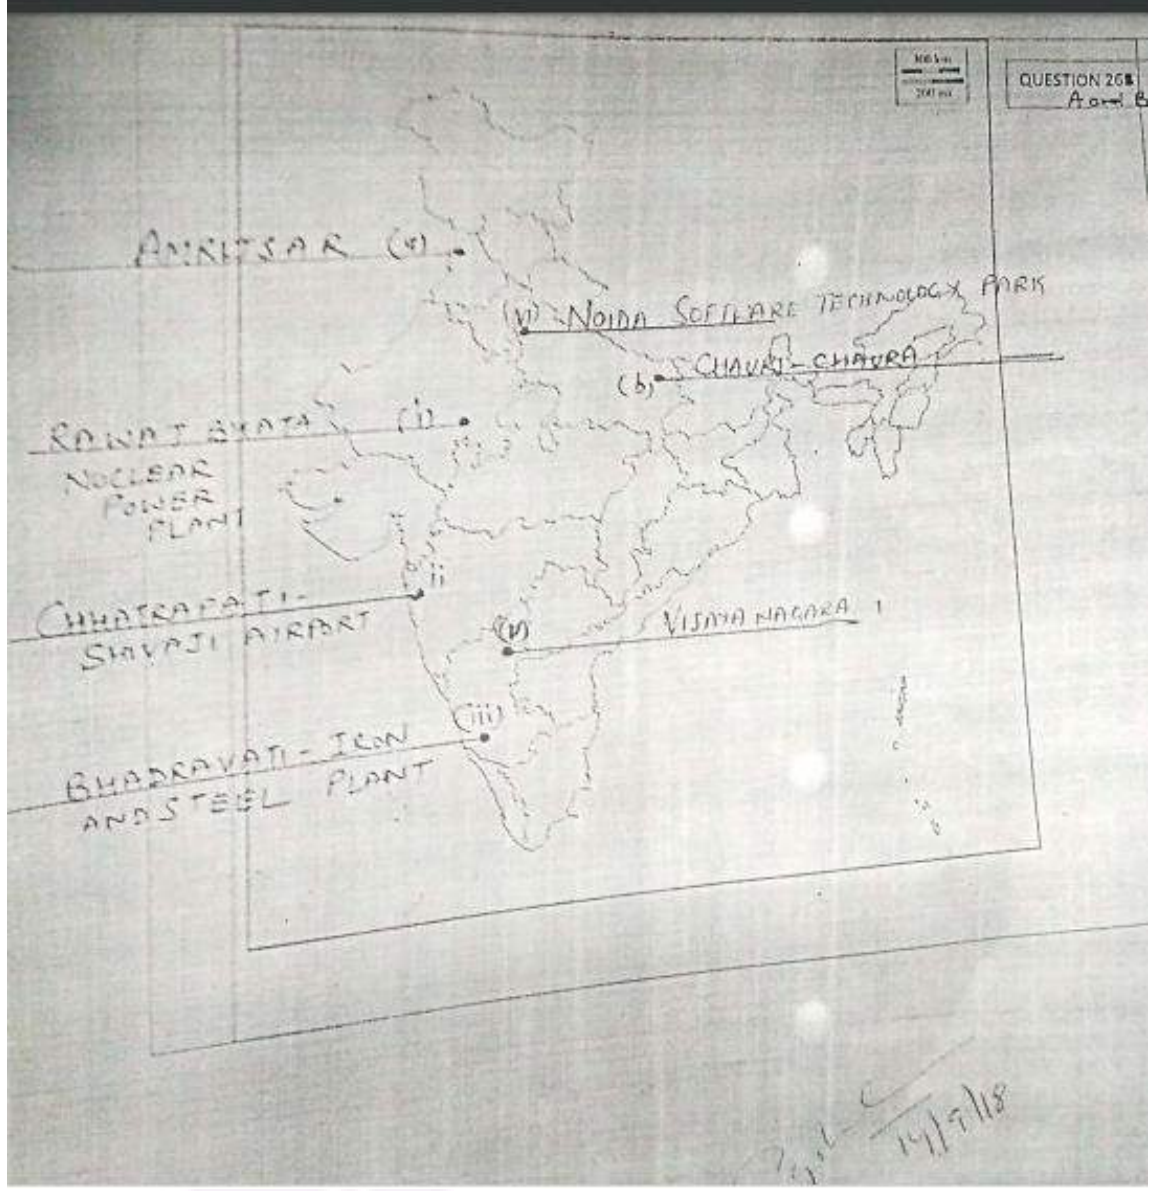 100 km
200 mi
QUESTION 26
A and B
AMRITSAR (a)
(vi) NOIDA SOFTWARE TECHNOLOGY PARK
(b) CHAURI-CHAURA
RAWAT BHATA (i)
NUCLEAR
POWER
PLANT
ii
CHHATRAPATI-
SHIVAJI AIRPORT
VIJAYANAGARA
(iii)
BHADRAVATI - IRON
AND STEEL PLANT
14/9/18